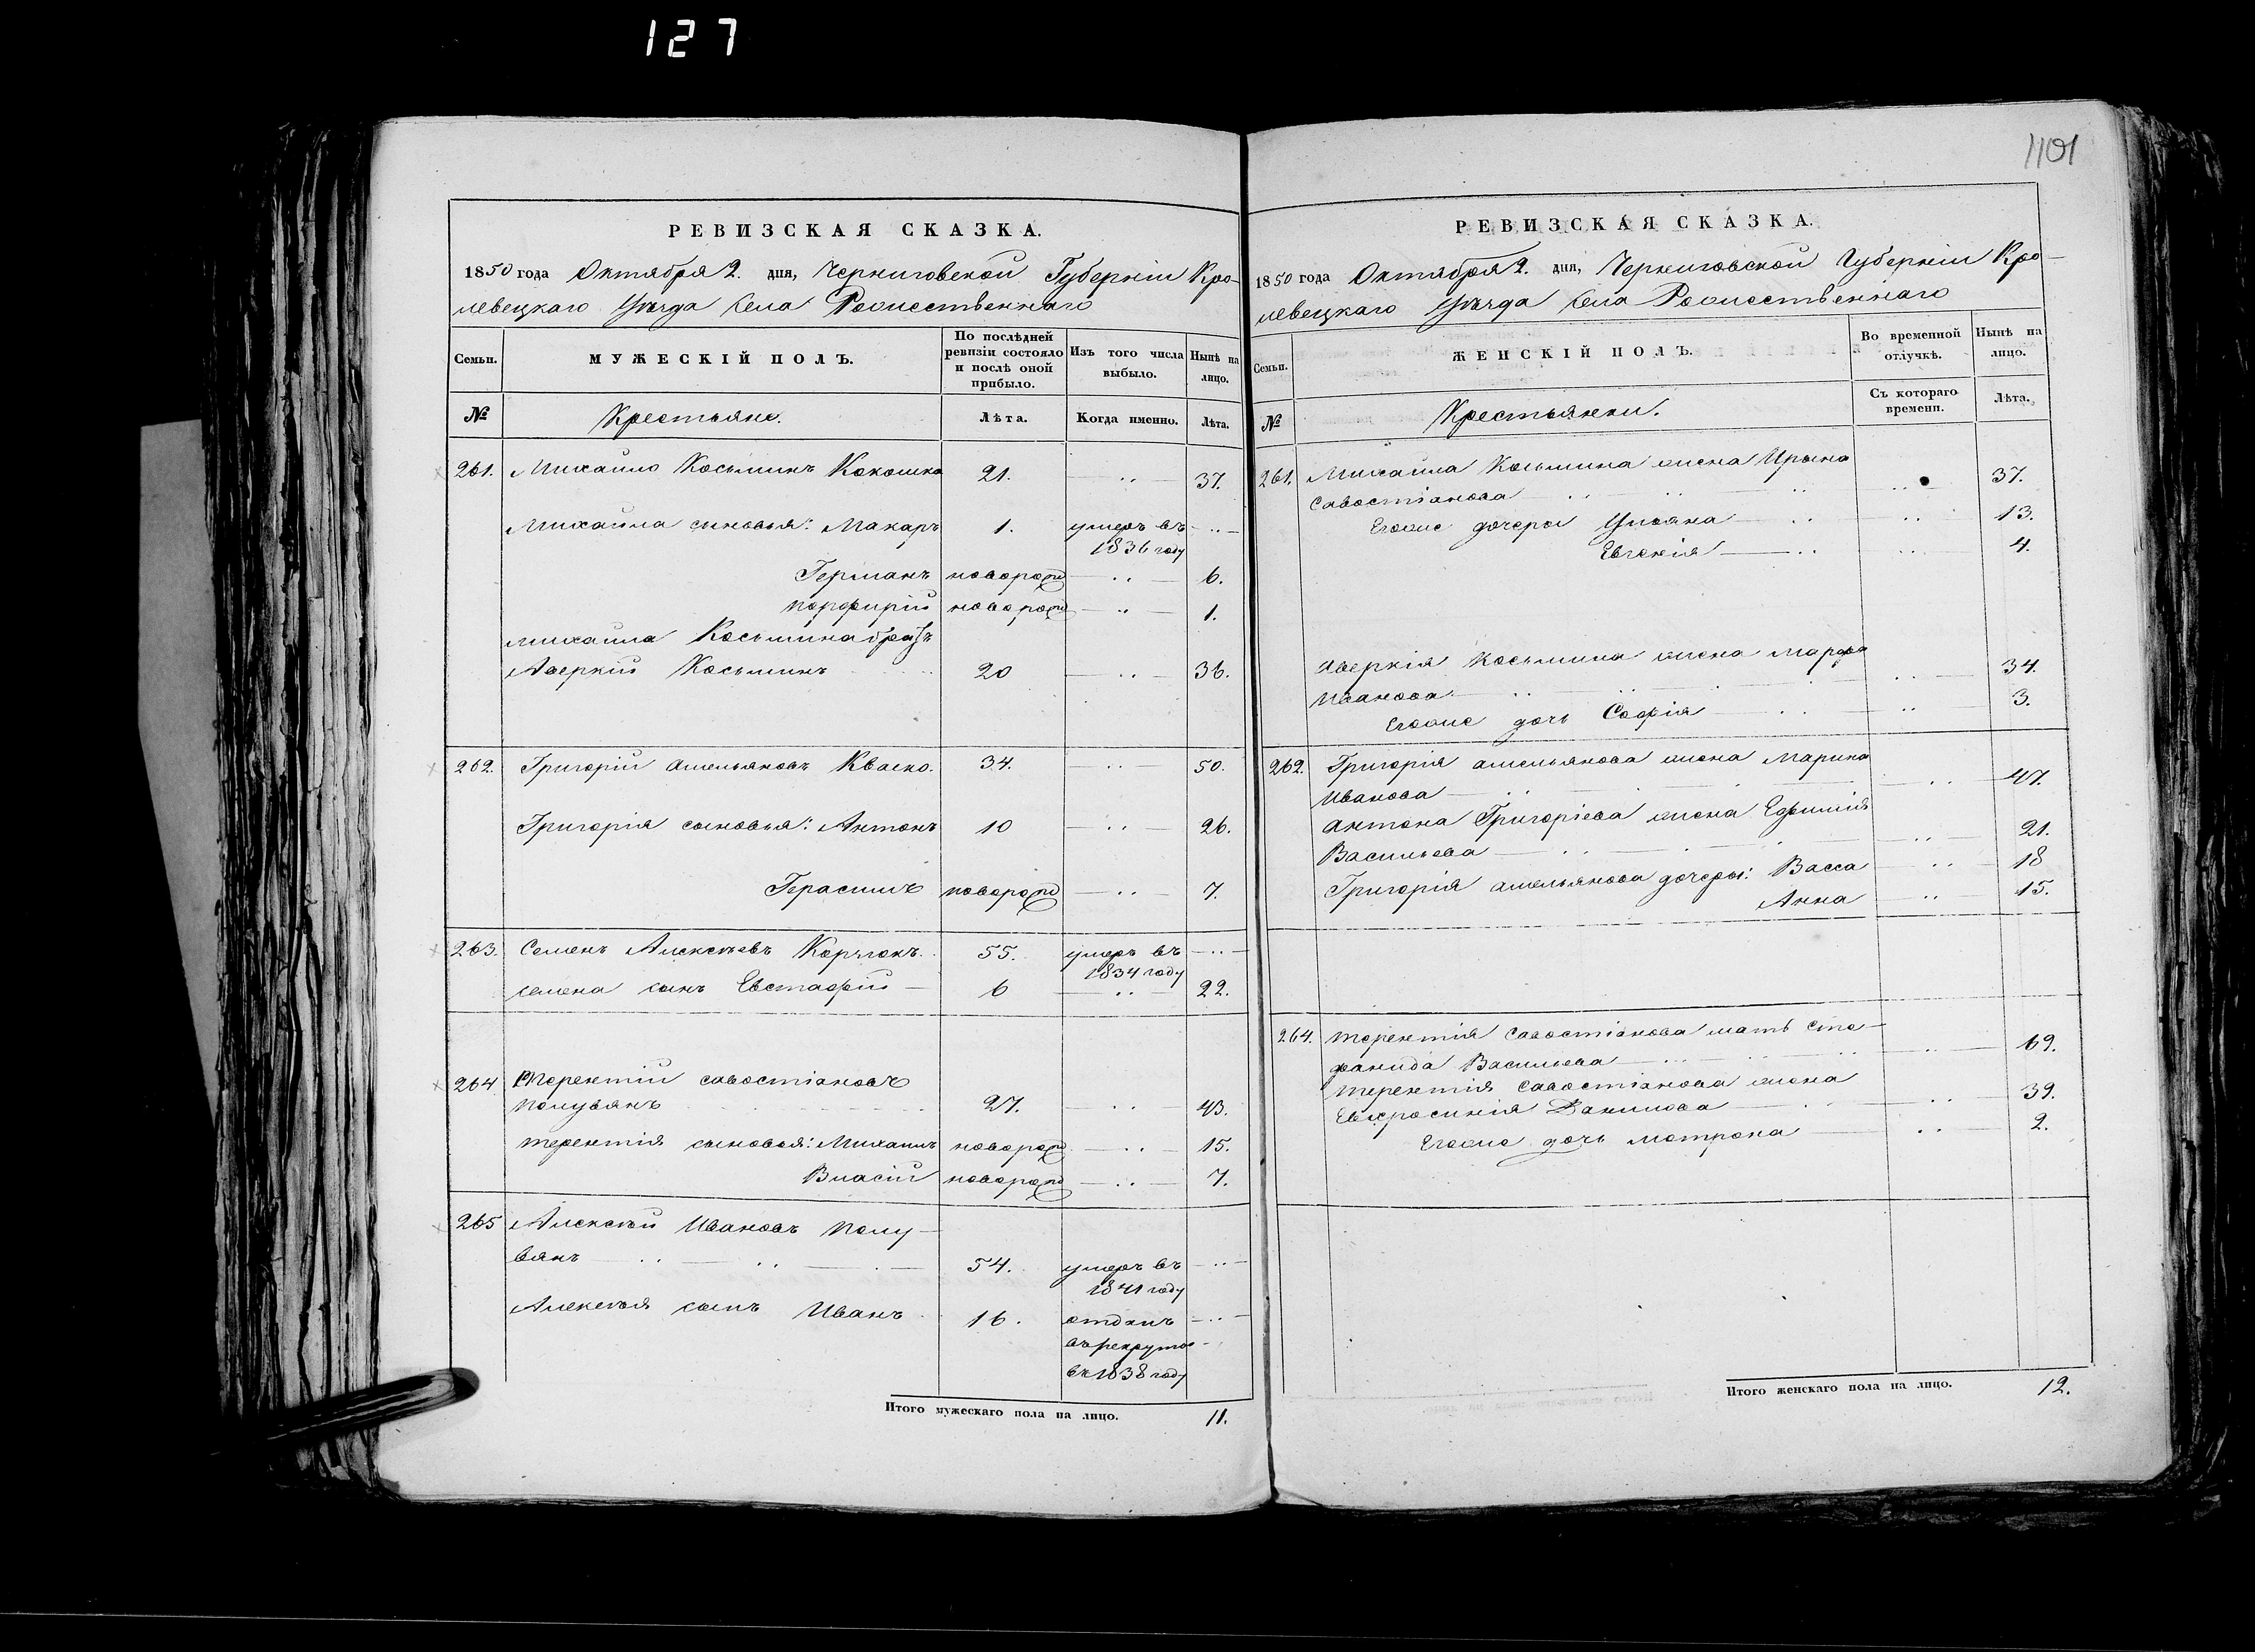 127
1101
РЕВИЗСКАЯ СКАЗКА.
1850 года Октября 2. дня, Черниговской Губерніи Кро-
левецкаго уѣзда села Рожественнаго
Семьи.
МУЖЕСКІЙ ПОЛЪ.
По послѣдней ревизіи состояло и послѣ оной прибыло.
Изъ того числа выбыло.
Нынѣ на лицо.
№
Крестьяне.
Лѣта.
Когда именно.
Лѣта.
261. Михайло Косьминъ Кокошка 21. 37.
Михайла сыновья: Макаръ 1. умеръ въ
1836 году
Германъ новорожд 6.
Порфирій новорожд 1.
Михайла Косьмина братъ
Аверкій Косьминъ 20 36.
262. Григорій Амельяновъ Кваско. 34. 50.
Григорія сыновья: Антонъ 10 26.
Герасимъ новорожд 7.
263. Семенъ Алексѣевъ 55. умеръ въ
1834 году
Семена сынъ Евстафій 6 22.
264 Терентій Савостіановъ
Полувянъ 27. 43.
Терентія сыновья: Михаилъ новорожд 15.
Власій новорожд 7.
265 Алексѣй Ивановъ Полу-
вянъ 54. умеръ въ
1841 году
Алексѣя сынъ Иванъ 16. отданъ
въ рекруты
въ 1838 году
Итого мужескаго пола на лицо. 11.
РЕВИЗСКАЯ СКАЗКА.
1850 года Октября 2. дня, Черниговской Губерніи Кро-
левецкаго уѣзда села Рожественнаго
Семьи.
ЖЕНСКІЙ ПОЛЪ.
Во временной отлучкѣ.
Нынѣ на лицо.
№
Крестьянки.
Съ котораго времени.
Лѣта.
261. Михайла Косьмина жена Ирина
Савостіанова 37.
Егоже дочери Ульяна 13.
Евгенія 4.
Аверкія Косьмина жена Марфа
Иванова 34.
Егоже дочь Софія 3.
262. Григорія Амельянова жена Марина
Иванова 47.
Антона Григоріева жена Ефимія
Васильева 21.
Григорія Амельянова дочеры: Васса 18
Анна 15.
264. Терентія Савостіанова мать Сте-
фанида Васильева 69.
Терентія Савостіанова жена
Евфросинія Данилова 39.
Егоже дочь Мотрона 2.
Итого женскаго пола на лицо. 12.